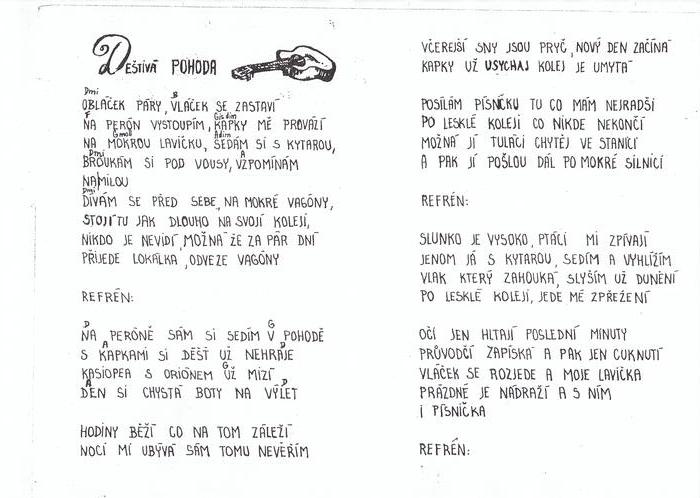 DEŠTIVÁ POHODA
Dmi B
OBLÁČEK PÁRY, VLÁČEK SE ZASTAVÍ
F Gisdim
NA PERÓN VYSTOUPÍM, KAPKY MĚ PROVÁZÍ
Gmoll Adim
NA MOKROU LAVIČKU, SEDÁM SI S KYTAROU,
Dmi A
BROUKÁM SI POD VOUSY, VZPOMÍNÁM
NA MILOU
Dmi
DÍVÁM SE PŘED SEBE, NA MOKRÉ VAGÓNY,
STOJÍ TU JAK DLOUHO NA SVOJÍ KOLEJÍ,
NIKDO JE NEVIDÍ, MOŽNÁ ŽE ZA PÁR DNÍ
PŘIJEDE LOKÁLKA, ODVEZE VAGÓNY
REFRÉN:
D G
NA PERÓNĚ SÁM SI SEDÍM V POHODĚ
A D
S KAPKAMI SI DÉŠŤ UŽ NEHRAJE
G
KASIOPEA S ORIÓNEM UŽ MIZÍ
A D
DEN SI CHYSTÁ BOTY NA VÝLET
HODINY BĚŽÍ CO NA TOM ZÁLEŽÍ
NOCÍ MI UBÝVÁ SÁM TOMU NEVĚŘÍM
VČEREJŠÍ SNY JSOU PRYČ, NOVÝ DEN ZAČÍNÁ
KAPKY UŽ USYCHAJ KOLEJ JE UMYTÁ
POSÍLÁM PÍSNIČKU TU CO MÁM NEJRADŠI
PO LESKLÉ KOLEJI CO NIKDE NEKONČÍ
MOŽNÁ JÍ TULÁCI CHYTĚJ VE STANICI
A PAK JÍ POŠLOU DÁL PO MOKRÉ SILNICI
REFRÉN:
SLUNKO JE VYSOKO, PTÁCI MI ZPÍVAJÍ
JENOM JÁ S KYTAROU, SEDÍM A VYHLÍŽÍM
VLAK KTERÝ ZAHOUKÁ, SLYŠÍM UŽ DUNĚNÍ
PO LESKLÉ KOLEJÍ, JEDE MÉ ZPŘEŽENÍ
OČI JEN HLTAJÍ POSLEDNÍ MINUTY
PRŮVODČÍ ZAPÍSKÁ A PAK JEN CUKNUTÍ
VLÁČEK SE ROZJEDE A MOJE LAVIČKA
PRÁZDNÉ JE NÁDRAŽÍ A S NÍM
I PÍSNIČKA
REFRÉN: